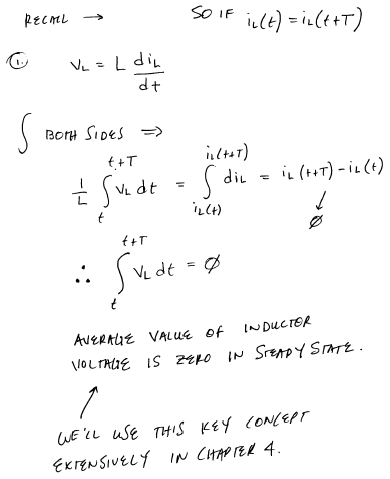 RECALL → SO IF i_L(t) = i_L(t+T)
①. V_L = L di_L/dt
∫ BOTH SIDES ⇒
1/L ∫_t^{t+T} V_L dt = ∫_{i_L(t)}^{i_L(t+T)} di_L = i_L(t+T) - i_L(t)
↓
∅
∴ ∫_t^{t+T} V_L dt = ∅
AVERAGE VALUE OF INDUCTOR
VOLTAGE IS ZERO IN STEADY STATE.
WE'LL USE THIS KEY CONCEPT
EXTENSIVELY IN CHAPTER 4.